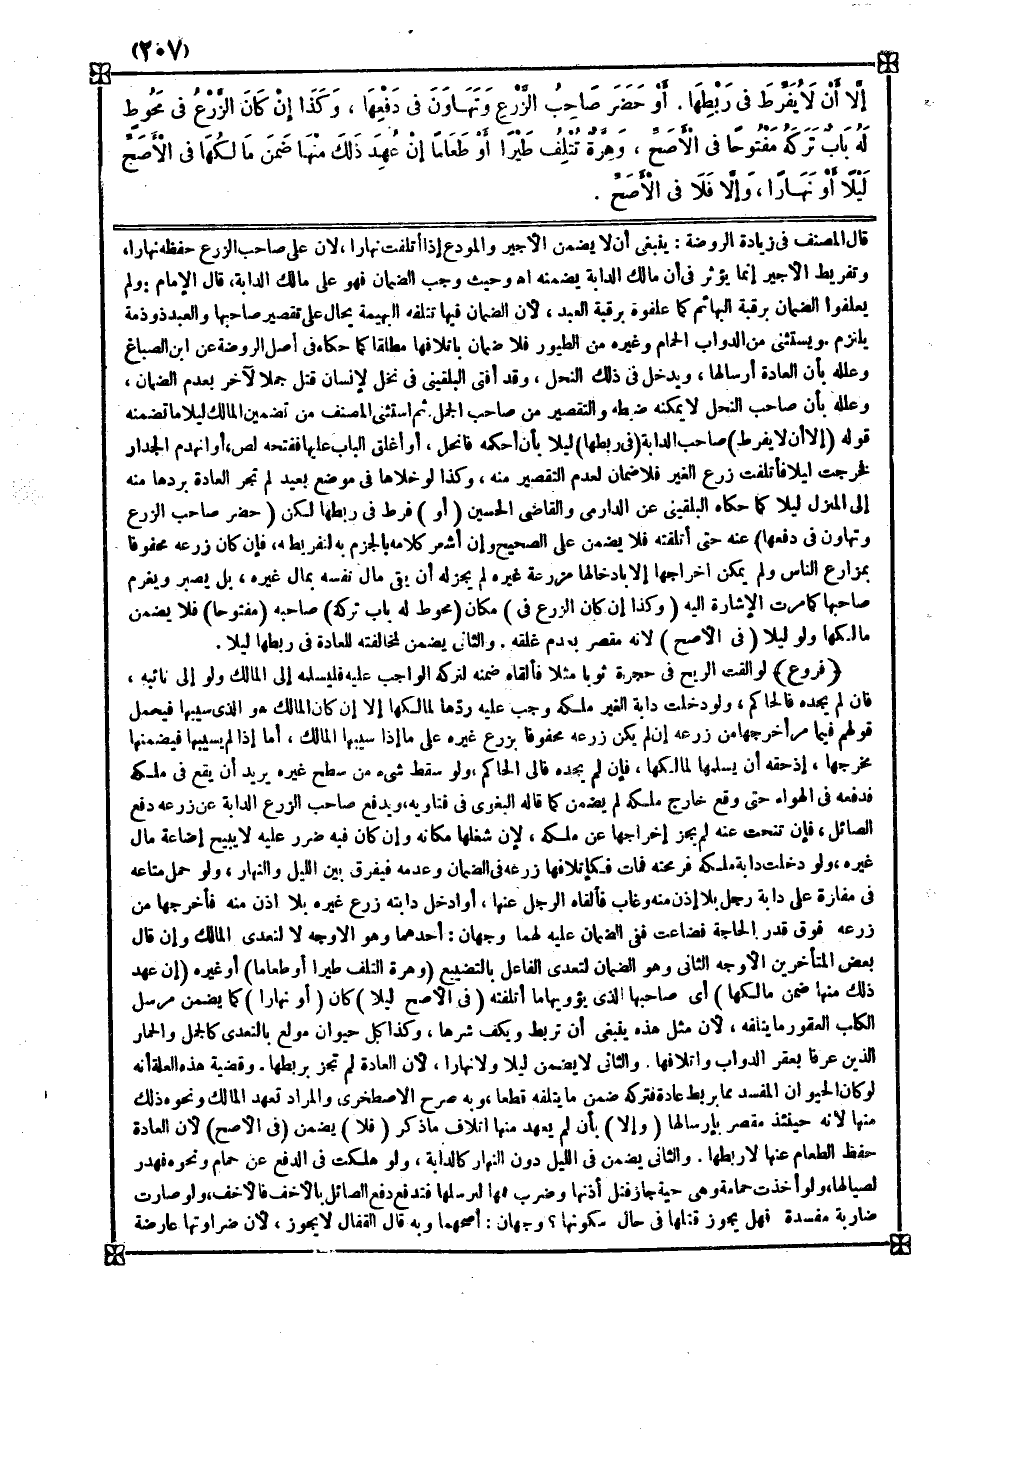 (٢٠٧)
إلَّا أَنْ لَا يُفَرِّطَ فِى رَبْطِهَا . أَوْ حَضَرَ صَاحِبُ الزَّرْعِ وَتَهَاوَنَ فِى دَفْعِهَا ، وَكَذَا إنْ كَانَ الزَّرْعُ فِى مَحُوطٍ
لَهُ بَابٌ تَرَكَهُ مَفْتُوحًا فِى الْأَصَحِّ ، وَهِرَّةٌ تُتْلِفُ طَيْرًا أَوْ طَعَامًا إنْ عُهِدَ ذَلِكَ مِنْهَا ضَمِنَ مَالِكُهَا فِى الْأَصَحِّ
لَيْلًا أَوْ نَهَارًا ، وَإِلَّا فَلَا فِى الْأَصَحِّ .
قال المصنف فى زيادة الروضة : ينبغى أن لا يضمن الأجير والمودع إذا أتلفت نهارا ، لان على صاحب الزرع حفظه نهارا ،
وتفريط الأجير إنما يؤثر فى أن مالك الدابة يضمنه اه وحيث وجب الضمان فهو على مالك الدابة، قال الإمام : ولم
يعلقوا الضمان برقبة البهائم كما علقوه برقبة العبد ، لأن الضمان فيما تتلفه البهيمة يحال على تقصير صاحبها والعبد ذو ذمة
يلتزم . ويستثنى من الدواب الحمام وغيره من الطيور فلا ضمان باتلافها مطلقا كما حكاه فى أصل الروضة عن ابن الصباغ
وعلله بأن العادة أرسالها ، ويدخل فى ذلك النحل ، وقد أفتى البلقينى فى نحل لإنسان قتل جملا لآخر بعدم الضمان ،
وعلله بأن صاحب النحل لا يمكنه ضبطه والتقصير من صاحب الجمل . ثم استثنى المصنف من تضمين المالك ليلا ما تضمنه
قوله (إلا أن لا يفرط) صاحب الدابة (فى ربطها) ليلا بأن أحكمه فانحل ، أو أغلق الباب عليها ففتحه لص، أو انهدم الجدار
فخرجت ليلا فأتلفت زرع الغير فلا ضمان لعدم التقصير منه ، وكذا لو خلاها فى موضع بعيد لم تجر العادة بردها منه
إلى المنزل ليلا كما حكاه البلقينى عن الدارمى والقاضى الحسين ( أو ) فرط فى ربطها لكن ( حضر صاحب الزرع
وتهاون فى دفعها) عنه حتى أتلفته فلا يضمن على الصحيح وإن أشعر كلامه بالجزم به لتفريطه ، فإن كان زرعه محفوفا
بمزارع الناس ولم يمكن اخراجها إلا بادخالها مزرعة غيره لم يجز له أن يقى مال نفسه بمال غيره ، بل يصبر ويغرم
صاحبها كما مرت الإشارة اليه ( وكذا إن كان الزرع فى ) مكان (محوط له باب تركه) صاحبه (مفتوحا) فلا يضمن
مالكها ولو ليلا ( فى الأصح ) لانه مقصر بعدم غلقه . والثانى يضمن لمخالفته للعادة فى ربطها ليلا .
(فروع) لو ألقت الريح فى حجرة ثوبا مثلا فألقاه ضمنه لتركه الواجب عليه فليسلمه إلى المالك ولو إلى نائبه ،
فان لم يجده فالحاكم ، ولو دخلت دابة الغير ملكه وجب عليه ردّها لمالكها إلا إن كان المالك هو الذى سيبها فيحمل
قولهم فيما مر أخرجها من زرعه إن لم يكن زرعه محفوفا بزرع غيره على ما إذا سيبها المالك ، أما إذا لم يسيبها فيضمنها
مخرجها ، إذ حقه أن يسلمها لمالكها ، فإن لم يجده فالى الحاكم ، ولو سقط شىء من سطح غيره يريد أن يقع فى ملكه
فدفعه فى الهواء حتى وقع خارج ملكه لم يضمن كما قاله البغوى فى فتاويه، ويدفع صاحب الزرع الدابة عن زرعه دفع
الصائل ، فإن تنحت عنه لم يجز إخراجها عن ملكه ، لإن شغلها مكانه وإن كان فيه ضرر عليه لا يبيح إضاعة مال
غيره ، ولو دخلت دابة ملكه فرمحته فمات فكإتلافها زرعه فى الضمان وعدمه فيفرق بين الليل والنهار ، ولو حمل متاعه
فى مفازة على دابة رجل بلا إذن منه وغاب فألقاه الرجل عنها ، أو ادخل دابته زرع غيره بلا اذن منه فأخرجها من
زرعه فوق قدر الحاجة فضاعت ففى الضمان عليه لهما وجهان : أحدهما وهو الاوجه لا لتعدى المالك وإن قال
بعض المتأخرين الأوجه الثانى وهو الضمان لتعدى الفاعل بالتضييع (وهرة تتلف طيرا أو طعاما) أو غيره (إن عهد
ذلك منها ضمن مالكها ) أى صاحبها الذى يؤويها ما أتلفته ( فى الأصح ليلا ) كان ( أو نهارا ) كما يضمن مرسل
الكلب العقور ما يتلفه ، لأن مثل هذه ينبغى أن تربط ويكف شرها ، وكذا كل حيوان مولع بالتعدى كالجمل والحمار
الذين عرفا بعقر الدواب واتلافها . والثانى لا يضمن ليلا ولا نهارا ، لأن العادة لم تجز بربطها . وقضية هذه العلة أنه
لو كان الحيوان المفسد مما يربط عادة فتركه ضمن ما يتلفه قطعا ، وبه صرح الاصطخرى والمراد تعهد المالك ونحوه ذلك
منها لانه حينئذ مقصر بإرسالها ( وإلا ) بأن لم يعهد منها اتلاف ماذكر ( فلا ) يضمن (فى الأصح) لأن العادة
حفظ الطعام عنها لا ربطها . والثانى يضمن فى الليل دون النهار كالدابة ، ولو هلكت فى الدفع عن حمام ونحوه فهدر
لصيالها، ولو أخذت حمامة وهى حية جاز فتل أذنها وضرب فمها لترسلها فتدفع دفع الصائل بالأخف فالأخف، ولو صارت
ضارية مفسدة فهل يجوز قتلها فى حال سكونها ؟ وجهان : أصحهما وبه قال القفال لا يجوز ، لأن ضراوتها عارضة